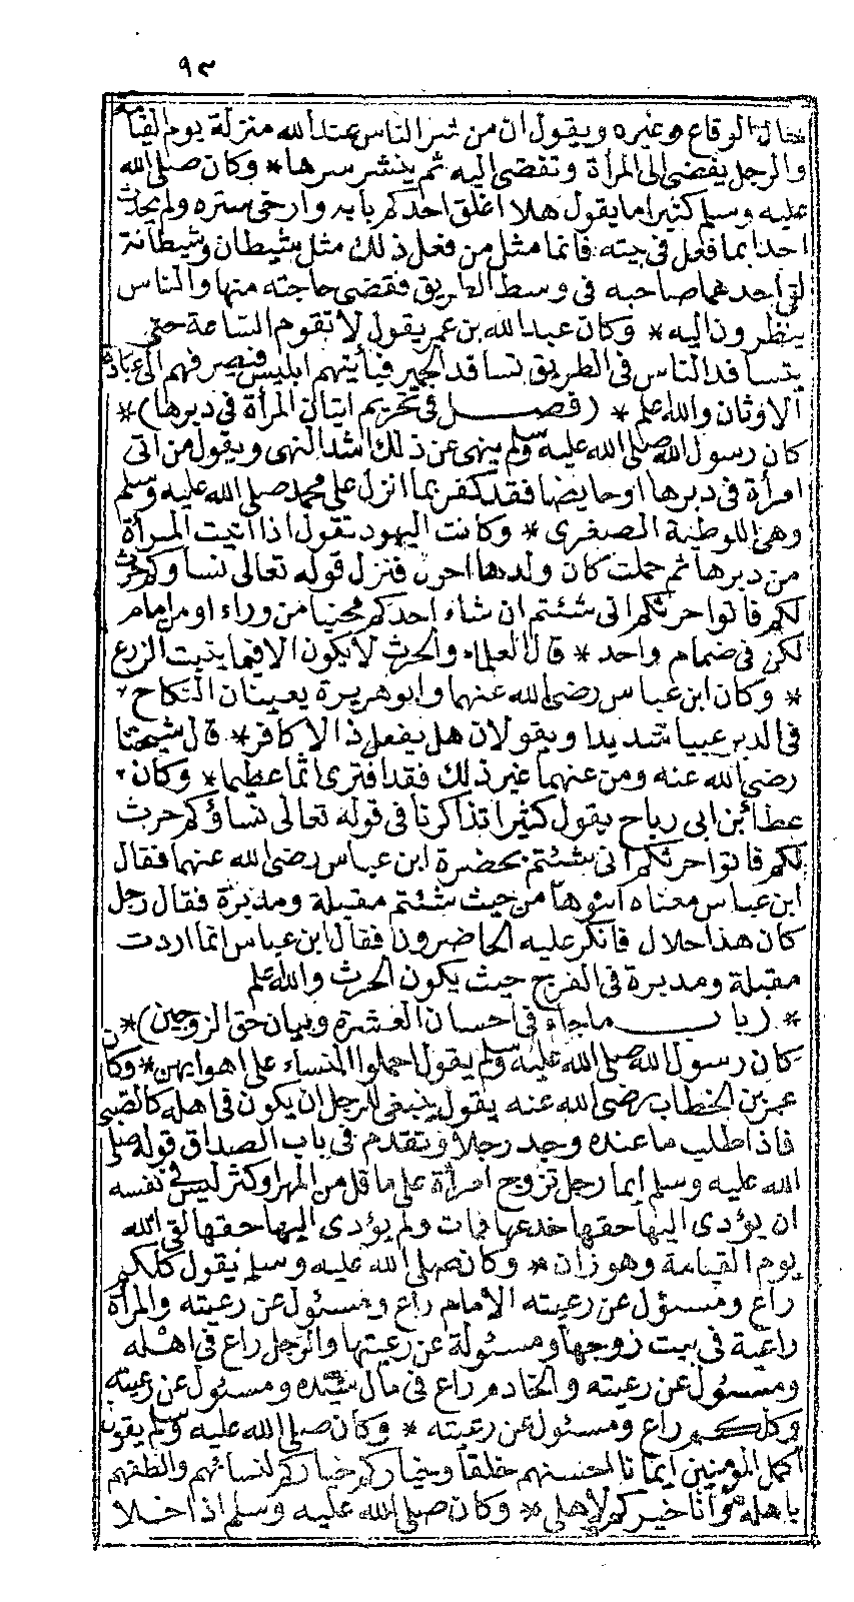 ٩٣
حال الوقاع وغيره ويقول ان من شر الناس عند الله منزلة يوم القيامة
والرجل يفضى الى المرأة وتفضى اليه ثم ينشر سرها * وكان صلى الله
عليه وسلم كثيرا ما يقول هلا اغلق احدكم بابه وارخى ستره ولم يحدث
احدا بما فعل فى بيته فانما مثل من فعل ذلك مثل شيطان وشيطانة
لقى احدهما صاحبه فى وسط الطريق فقضى حاجته منها والناس
ينظرون اليه * وكان عبد الله بن عمر يقول لا تقوم الساعة حتى
يتسافد الناس فى الطريق تسافد الحمير فيأتيهم ابليس فيصرفهم الى عبادة
الاوثان والله اعلم * (فصل فى تحريم اتيان المرأة فى دبرها) *
كان رسول الله صلى الله عليه وسلم ينهى عن ذلك اشد النهى ويقول من اتى
امرأة فى دبرها او حايضا فقد كفر بما انزل على محمد صلى الله عليه وسلم
وهى اللوطية الصغرى * وكانت اليهود تقول اذا اتيت المرأة
من دبرها ثم حملت كان ولدها احول فنزل قوله تعالى نساوكم حرث
لكم فاتوا حرثكم انى شئتم ان شاء احدكم محنيا من وراء او من امام
لكن فى ضمام واحد * قال العلماء والحرث لا يكون الا فيما ينبت الزرع
* وكان ابن عباس رضى الله عنهما وابو هريرة يعيبان النكاح
فى الدبر عيبا شديدا ويقولان هل يفعل ذا الا كافر * قال شيخنا
رضى الله عنه ومن عنهما غير ذلك فقد افترى اثما عظيما * وكان
عطاء بن ابى رباح يقول كثيرا تذاكرنا فى قوله تعالى نساؤكم حرث
لكم فاتوا حرثكم انى شئتم بحضرة ابن عباس رضى الله عنهما فقال
ابن عباس معناه ائتوها من حيث شئتم مقبلة ومدبرة فقال رجل
كان هذا حلال فانكر عليه الحاضرون فقال ابن عباس انما اردت
مقبلة ومدبرة فى الفرج حيث يكون الحرث والله اعلم
* (باب ما جاء فى احسان العشرة وبيان حق الزوجين) *
كان رسول الله صلى الله عليه وسلم يقول احملوا النساء على اهوايهن * وكان
عمر بن الخطاب رضى الله عنه يقول ينبغى للرجل ان يكون فى اهله كالصبى
فاذا طلب ما عنده وجد رجلا وتقدم فى باب الصداق قوله صلى
الله عليه وسلم ايما رجل تزوج امرأة على ما قل من المهر او كثر ليس فى نفسه
ان يؤدى اليها حقها خدعها فمات ولم يؤدى اليها حقها لقى الله
يوم القيامة وهو زان * وكان صلى الله عليه وسلم يقول كلكم
راع ومسؤل عن رعيته الامام راع ومسئول عن رعيته والمرأة
راعية فى بيت زوجها ومسئولة عن رعيتها والرجل راع فى اهله
ومسئول عن رعيته والخادم راع فى مال سيده ومسئول عن رعيته
وكلكم راع ومسئول عن رعيته * وكان صلى الله عليه وسلم يقول
اكمل المومنين ايمانا احسنهم خلقا وخياركم خياركم لنسائهم والطفهم
باهله وانا خيركم لاهلى * وكان صلى الله عليه وسلم اذا خلا